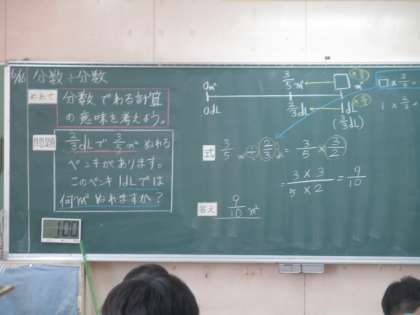 分数÷分数
めあて
分数でわる計算
の意味を考えよう。
問題
2/3dLで3/5m²ぬれる
ペンキがあります。
このペンキ1dLでは
何m²ぬれますか?
0m² 3/5m² □m²
0dL 2/3dL 1dL
(3/3dL)
式 3/5÷2/3=3/5×3/2
=3×3/5×2=9/10
答え 9/10m²
100